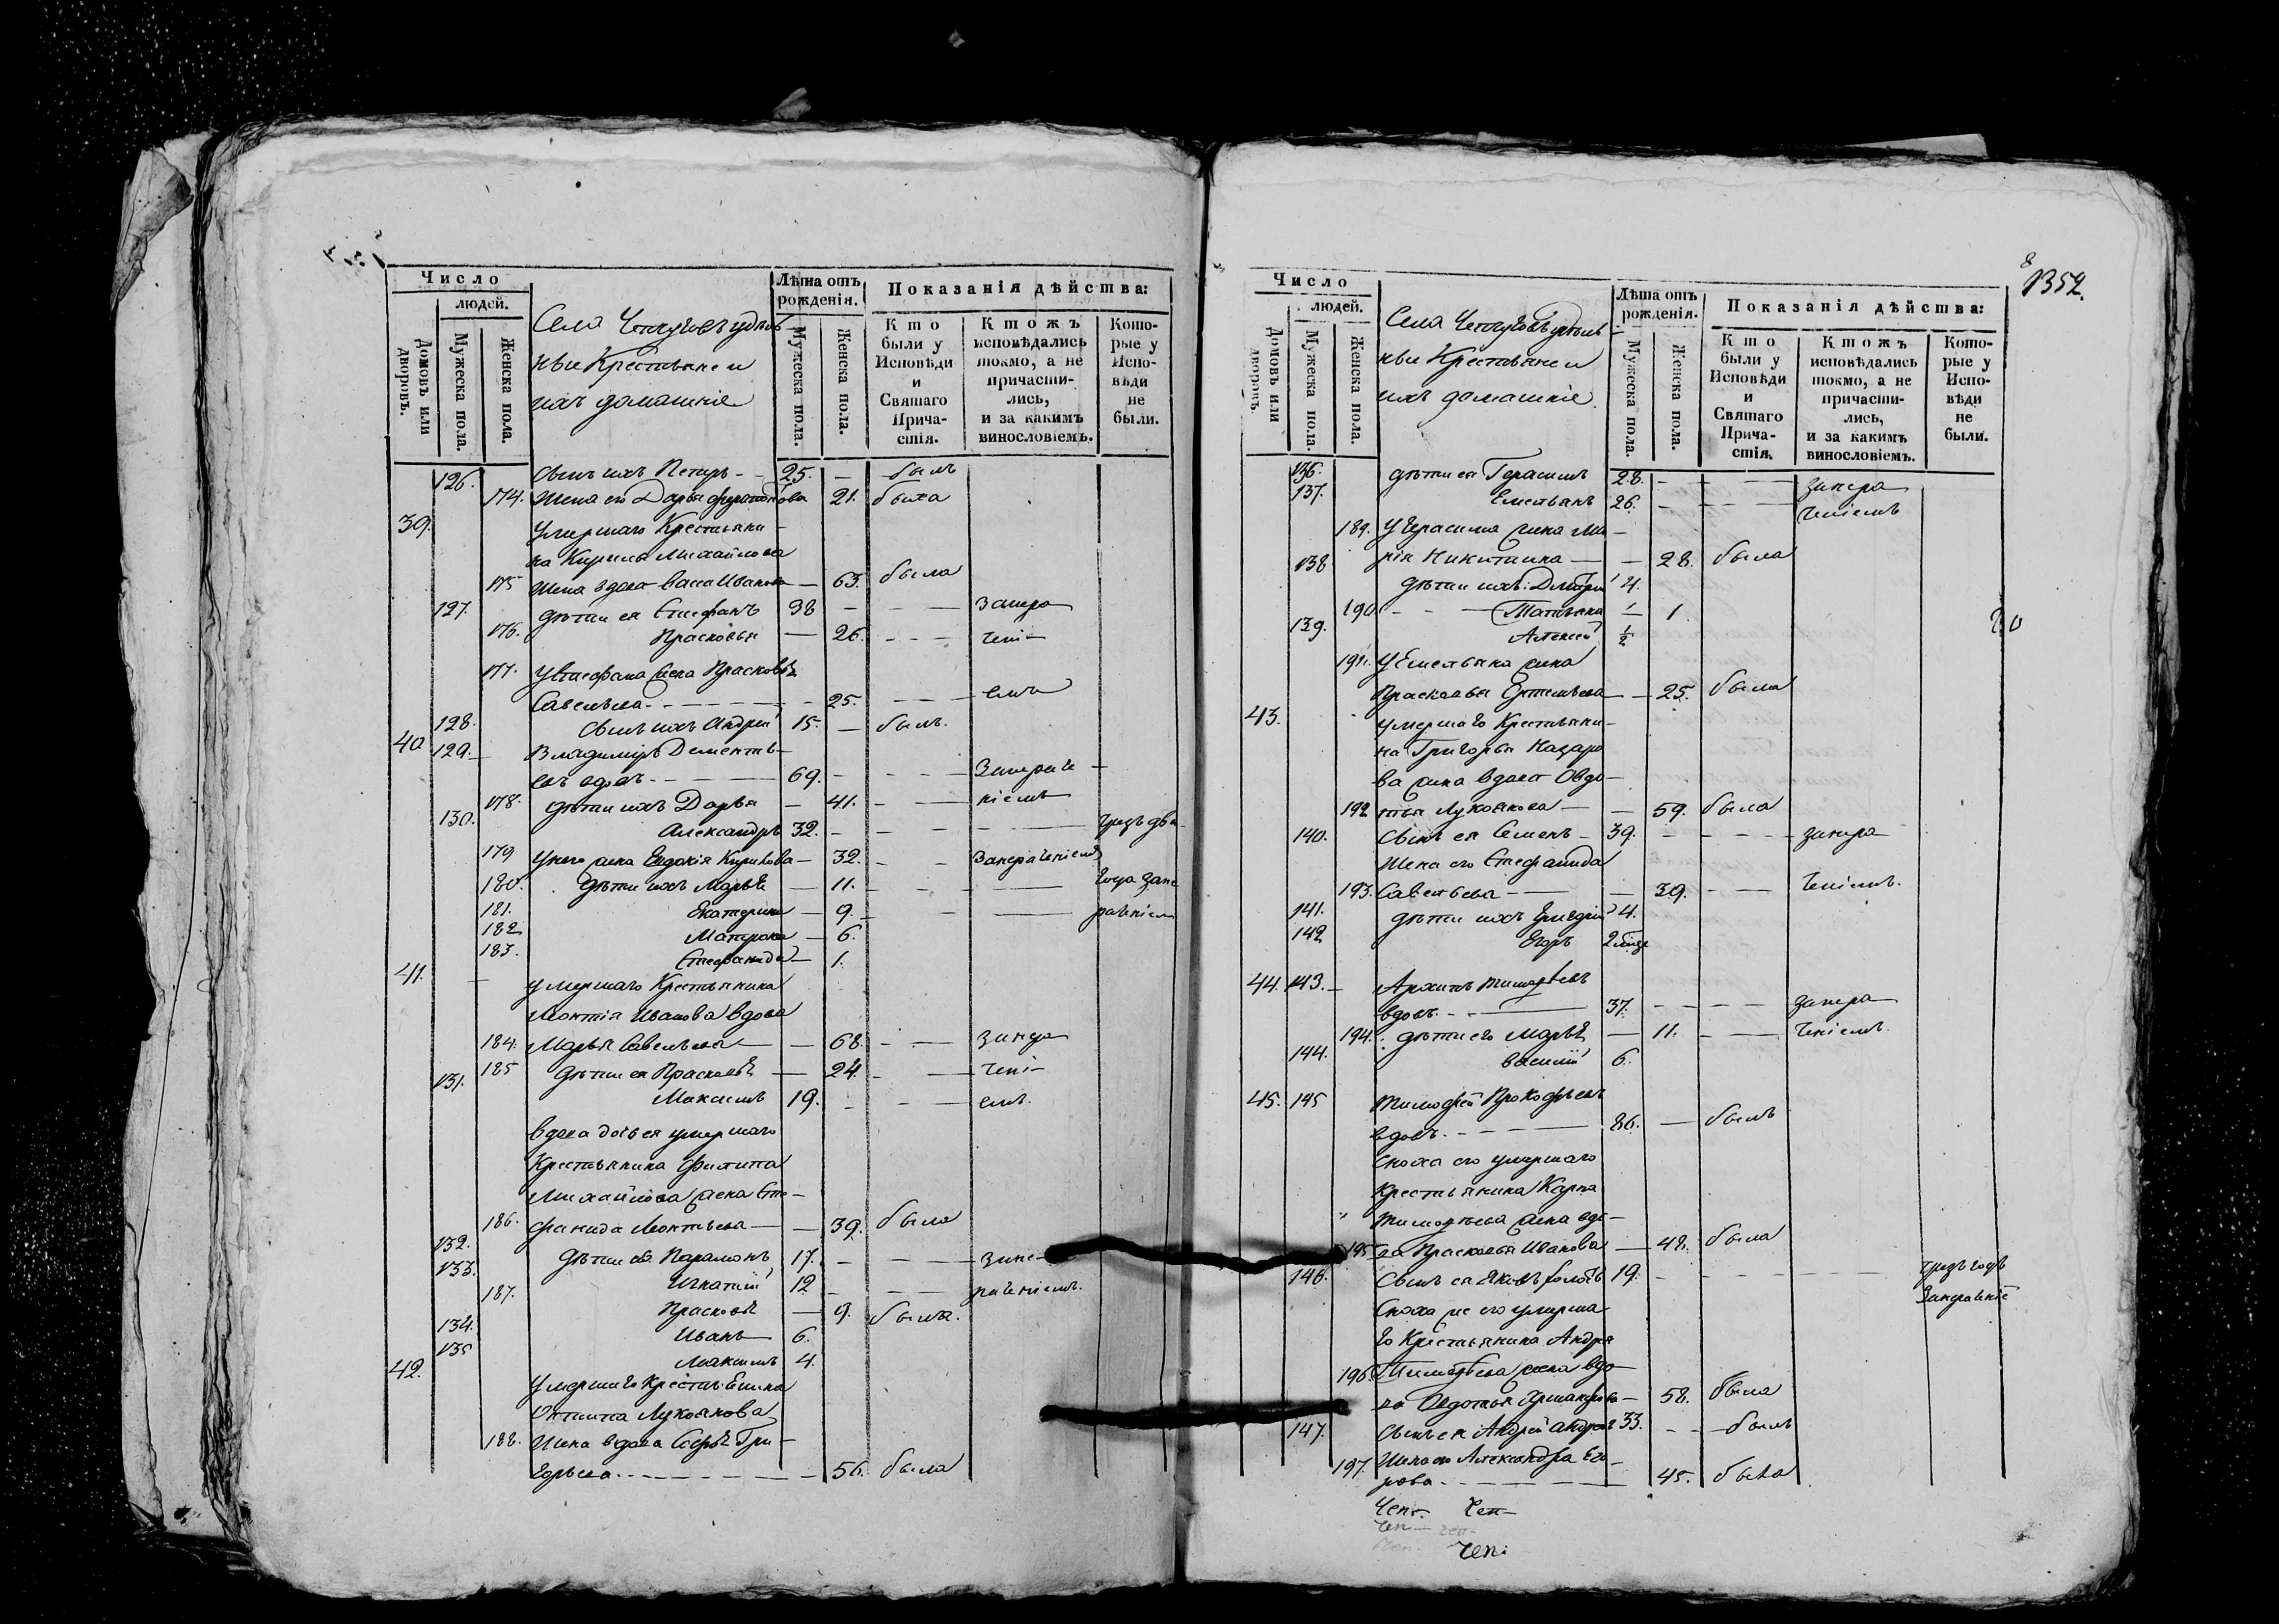 Число
людей.
Домовъ или дворовъ.
Мужеска пола.
Женска пола.
Села
ные Крестьяне и
ихъ домашніе
Лѣта отъ рожденія.
Мужеска пола.
Женска пола.
Показанія дѣйства:
Кто были у Исповѣди и Святаго Причастія.
Ктожъ исповѣдались токмо, а не причастились, и за какимъ винословіемъ.
Которые у Исповѣди не были.
126. сынъ ихъ Петръ - - 25. — былъ
174. Жена его Дарья 21. была
39. Умершаго Крестьяни-
на Кирила Михайлова
175 Жена вдова Иванова — 63. была
127. дѣти ея Стефанъ 38 - - — Занера
176. Прасковья — 26. - - - чені-
177. У Стефана жена Прасковья
Савельева - - - - 25. - - — емъ
128. Сынъ ихъ Андрей 15. — былъ.
40 129. Владимиръ Дементь-
евъ вдовъ - - — 69. - - - — Занераче-
178. дѣти ихъ Дарья — 41. - — ніемъ
130. Александръ 32. - - - - — чрезъ два
179 У него жена Евдокія Кирилова — 32. - - Занераченіемъ
180. дѣти ихъ Марья — 11. - - — года Зане
181. Екатерина — 9. - - — раченіем
182 Матрона — 6.
183. Стефанида — 1.
41. умершаго Крестьянина
Леонтія Иванова вдова
184. Марья Савельева — — 68. - — Занера
185 Дѣти ея Прасковья — 24. - — чені-
131. Максимъ 19. - - — емъ.
вдова дочь ея умершаго
Крестьянина Филипа
Михайлова жена Сте-
186. фанида Леонтьева — — 39. была
132. Дѣти ея Парамонъ 17. - - — Зане-
133. Игнатий 12 - - — раченіемъ.
187. Прасковья — 9. была.
134. Иванъ 6.
135 Максимъ 4.
42. Умершаго Крестьянина
Лукоянова
188. Жена вдова Софья Гри-
горьева - - - - — 56. была
8
1352.
Число
людей.
Домовъ или дворовъ.
Мужеска пола.
Женска пола.
Села
ные Крестьяне и
ихъ домашніе
Лѣта отъ рожденія.
Мужеска пола.
Женска пола.
Показанія дѣйства:
Кто были у Исповѣди и Святаго Причастія.
Ктожъ исповѣдались токмо, а не причастились, и за какимъ винословіемъ.
Которые у Исповѣди не были.
136. дѣти ея Герасимъ 28. - — занера
137. Емельянъ 26. - - - — ченіемъ
189. У Герасима жена Ма-
рія Никитина — — 28. была
138 дѣти ихъ: Дмитрий 4.
190. - - — Татьяна 1.
139. Алексей ½
191. У Емельяна жена
Прасковья — 25. была
43. умершаго Крестьяни-
на Григорья Назаро
ва жена вдова Овдо-
192 тья Лукоянова — — 59. была
140. Сынъ ея Семенъ - 39. - - - - занера
Жена его Стефанида
193. Савельева — — 39. - — ченіемъ.
141. дѣти ихъ 4.
142 Егоръ
44. 143. Архипъ Тимофеевъ
вдовъ. - - — 37. - - - — занера
194. дѣти его Марья — 11. - — ченіемъ.
144. Василій 6.
45. 145 Тимофей Прокофьевъ
вдовъ. - - - — 86. — былъ
Сноха его умершаго
Крестьянина Карпа
Тимофеева жена вдо-
195 ва Прасковья Иванова — 48. была
146. Сынъ ея Яковъ 19. - - - - - чрезъ годъ
Занераченіе
Сноха же его умерша
го Крестьянина Андрея
196. Тимофеева жена вдо-
ва Федотья — 58. была
147. Сынъ ея Андрей 33. - - — былъ
197. Жена его Александра Его-
рова - - - — 45. была
Чен. Чен-
Чен - чен-
Чен.